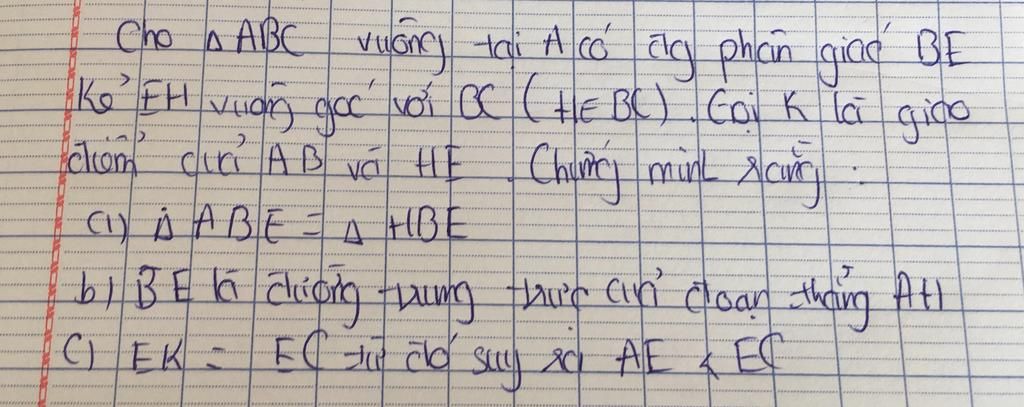 Cho △ ABC vuông tại A có đg phân giác BE
Kẻ EH vuông góc với BC (H∈ BC). Gọi K là giao
điểm của AB và HE. Chứng minh rằng :
a) △ ABE = △ HBE
b) BE là đường trung trực của đoạn thẳng AH
c) EK = EC từ đó suy ra AE < EC